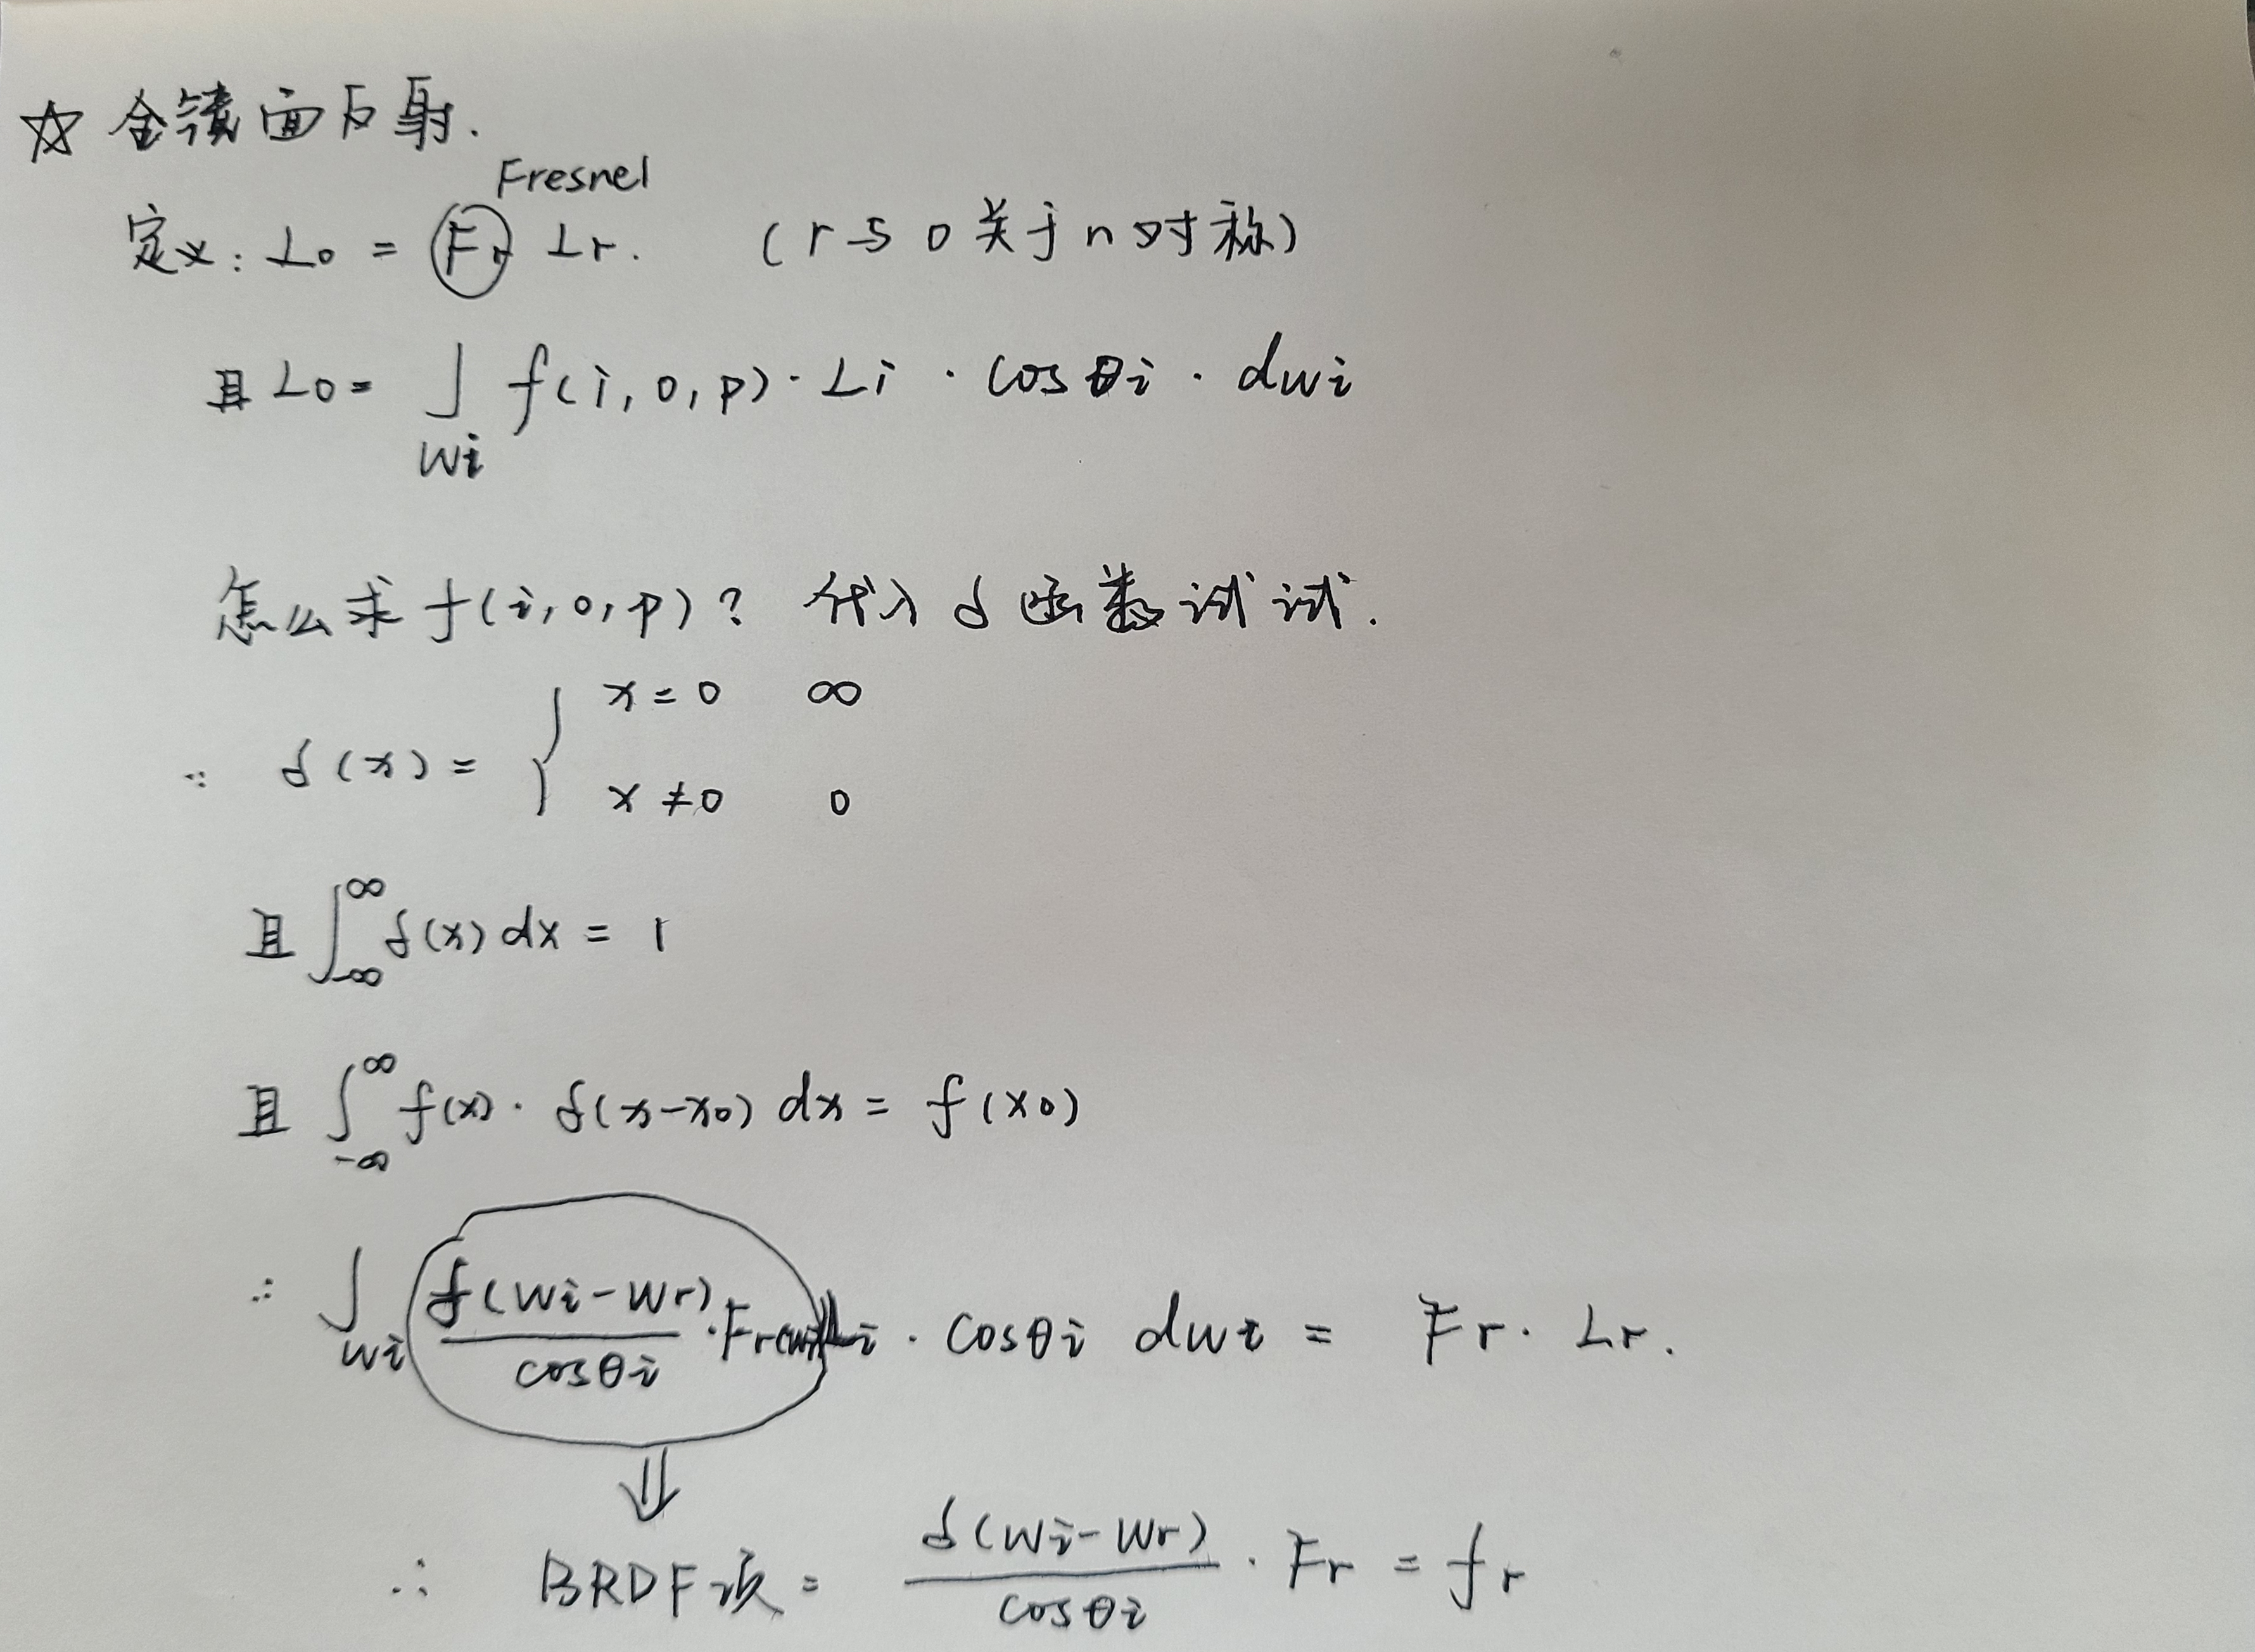 ☆ 全镜面反射.
Fresnel
定义: Lo = Fr Lr. (r与o关于n对称)
且 Lo = ∫ f(i, o, p) · Li · cosθi · dwi
Wi
怎么求 f(i, o, p)? 代入 δ 函数试试.
x = 0 ∞
∵ δ(x) = {
x ≠ 0 0
且 ∫_{-∞}^{∞} δ(x) dx = 1
且 ∫_{-∞}^{∞} f(x) · δ(x-x0) dx = f(x0)
∴ ∫_{Wi} δ(Wi-Wr)/cosθi · Fr Li · cosθi dwi = Fr · Lr.
⇓
∴ BRDF项 = δ(Wi-Wr)/cosθi · Fr = fr